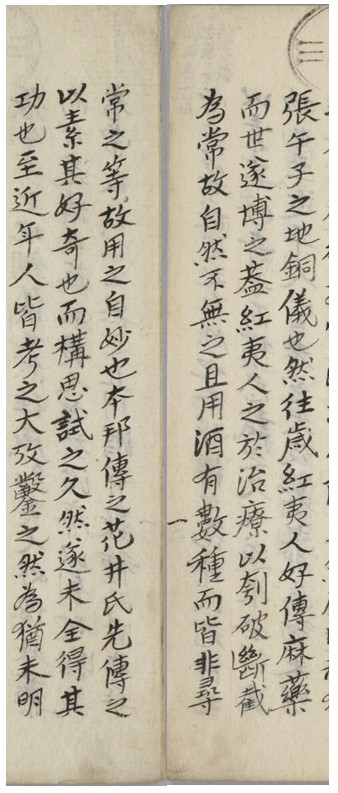 張午子之地銅儀也然往歳紅夷人好傳麻藥
而世遂博之蓋紅夷人之於治療以刳破斷截
為常故自然不無之且用酒有數種而皆非尋
常之等故用之自妙也本邦傳之花井氏先傳之
以素其好奇也而構思試之久然遂未全得其
功也至近年人皆考之大攷鑿之然為猶未明